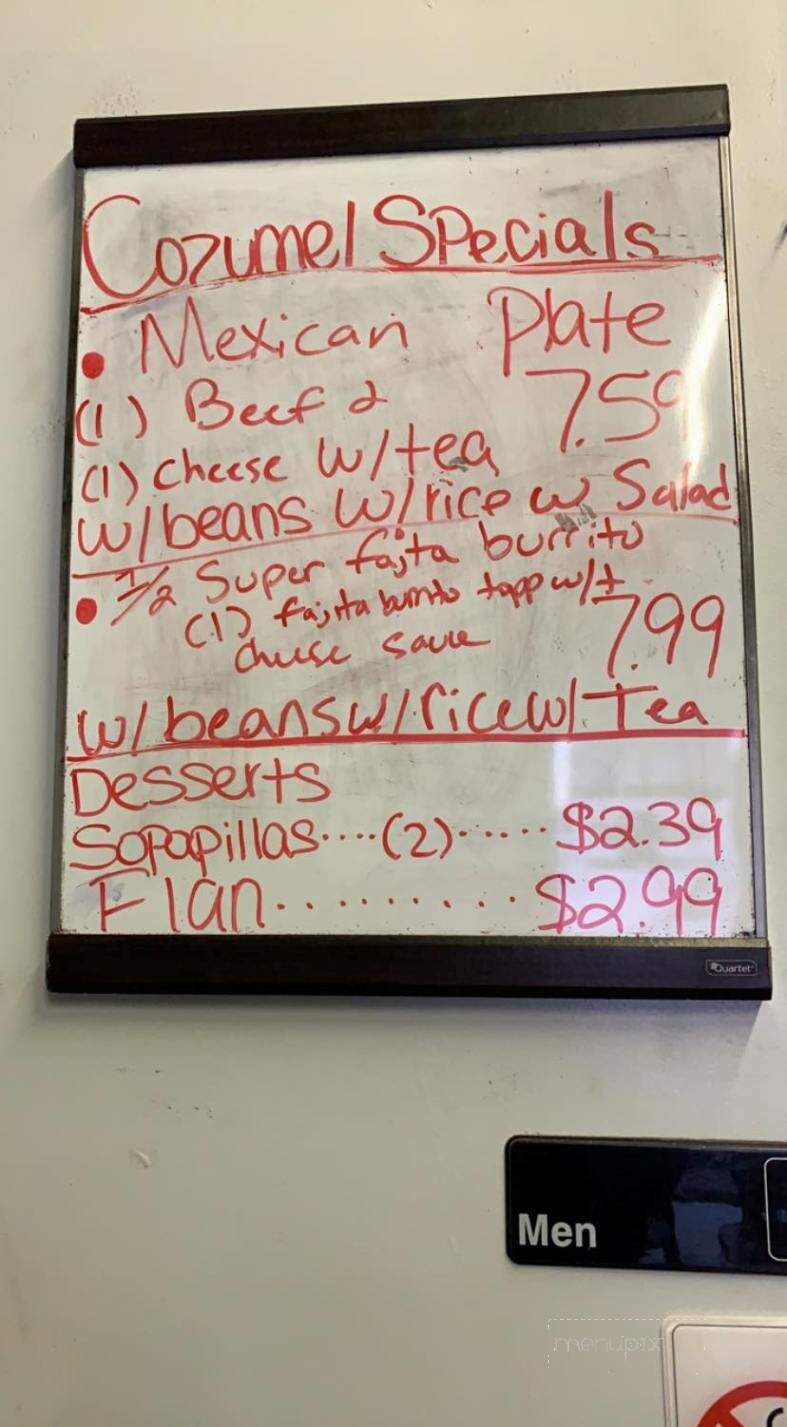 Cozumel Specials
• Mexican Plate
(1) Beef & 7.59
(1) cheese w/tea
w/beans w/rice w Salad
• 1/2 Super fajita burrito
(1) fajita burrito topp w/t
cheese sauce 7.99
w/beans w/rice w/ Tea
Desserts
Sopapillas....(2)..... $2.39
Flan.......... $2.99
Quartet
Men
menupix